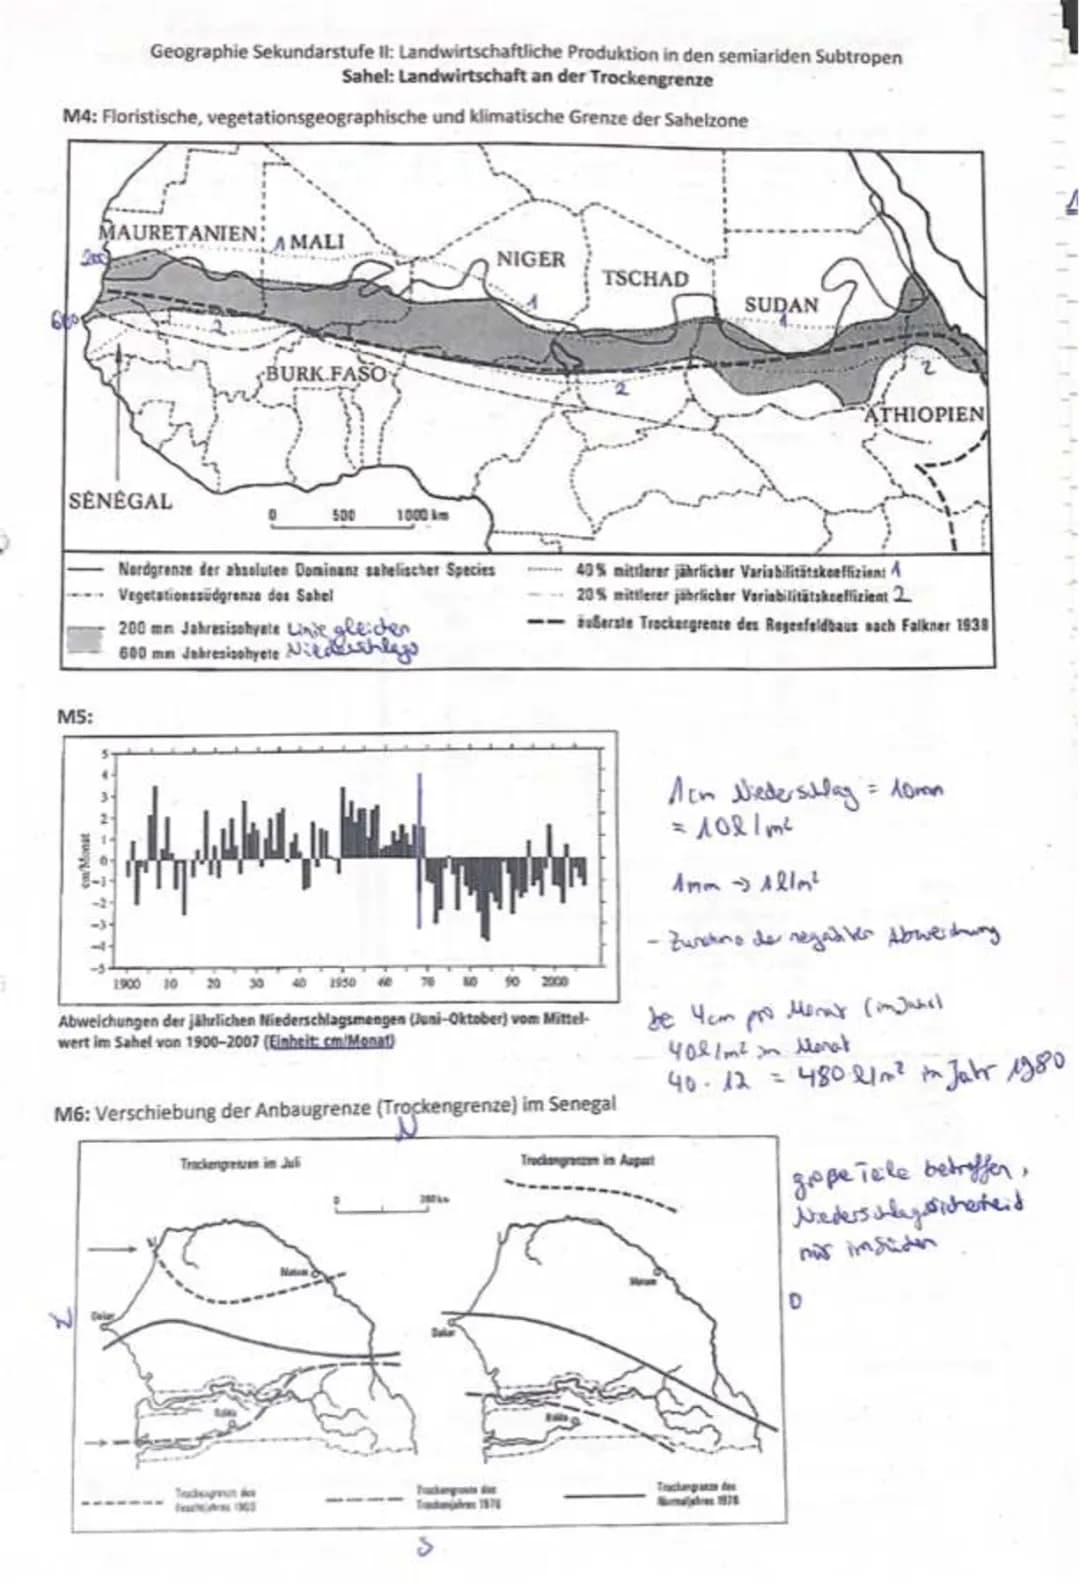 Geographie Sekundarstufe II: Landwirtschaftliche Produktion in den semiariden Subtropen
Sahel: Landwirtschaft an der Trockengrenze
M4: Floristische, vegetationsgeographische und klimatische Grenze der Sahelzone
MAURETANIEN
1 MALI
NIGER
TSCHAD
SUDAN
200
600
1
1
2
2
2
BURK.FASO
ÄTHIOPIEN
SÉNÉGAL
0 500 1000 km
Nordgrenze der absoluten Dominanz sahelischer Species
Vegetationssüdgrenze des Sahel
200 mm Jahresisohyete Linie gleichen
600 mm Jahresisohyete Niederschlags
40 % mittlerer jährlicher Variabilitätskoeffizient 1
20 % mittlerer jährlicher Variabilitätskoeffizient 2
äußerste Trockengrenze des Regenfeldbaus nach Falkner 1938
M5:
cm/Monat
5
4
3
2
1
0
-1
-2
-3
-4
-5
1900 10 20 30 40 1950 60 70 80 90 2000
Abweichungen der jährlichen Niederschlagsmengen (Juni-Oktober) vom Mittel-
wert im Sahel von 1900–2007 (Einheit: cm/Monat)
1cm Niederschlag = 10mm
= 10l/m²
1mm → 1l/m²
- der negativen Abweichung
4cm pro Monat (im Jahr)
40l/m² im Monat
40 · 12 = 480 l/m² im Jahr 1980
M6: Verschiebung der Anbaugrenze (Trockengrenze) im Senegal
N
Trockengrenzen im Juli
Trockengrenzen im August
0 200 km
Matam
Matam
Dakar
Dakar
Kolda
Kolda
W
O
S
große Teile betroffen,
Niederschlagssicherheit
nur im Süden
Trockengrenze des
Feuchtjahres
Trockengrenze des
Trockenjahres
Trockengrenze des
Normaljahres